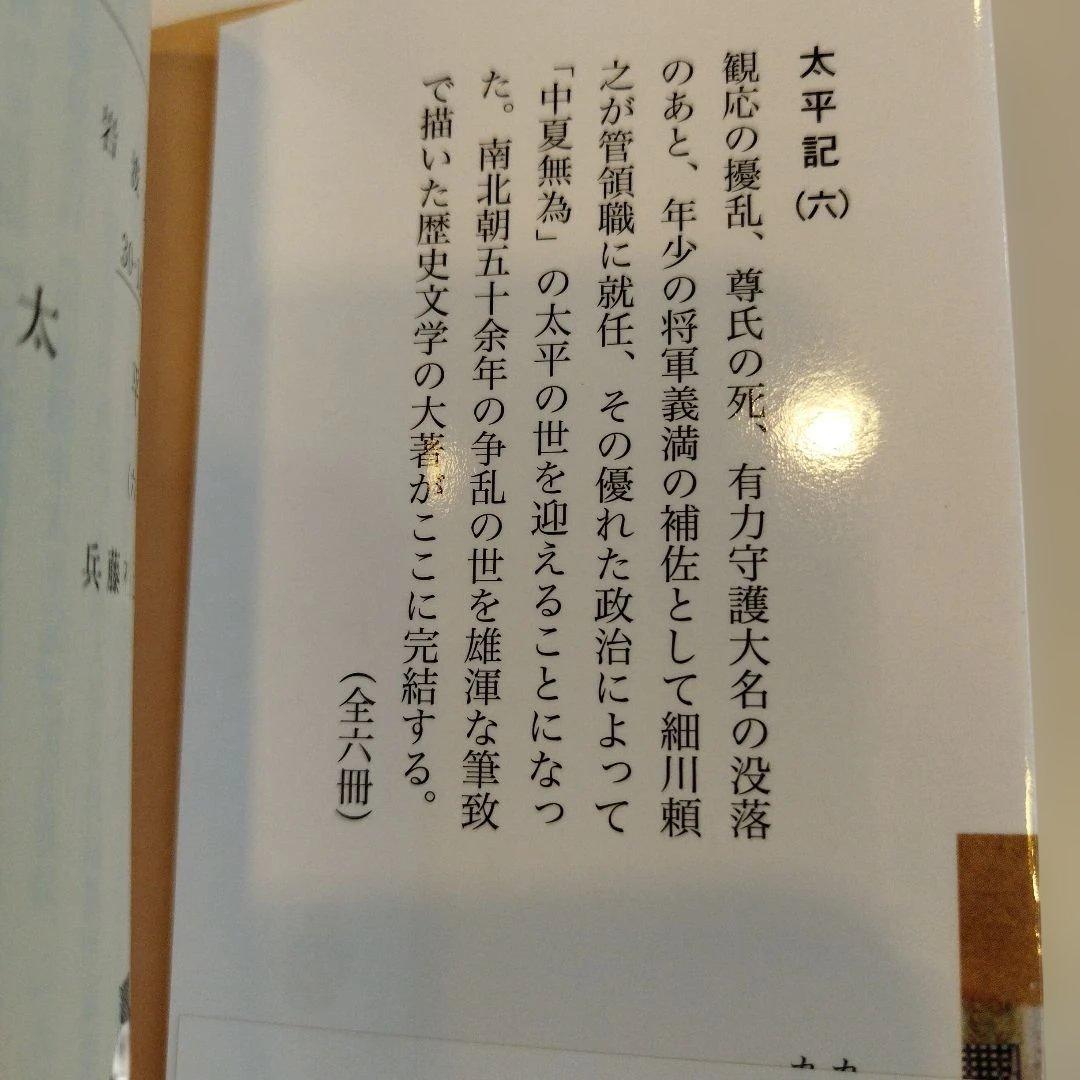 太平記(六)
観応の擾乱、尊氏の死、有力守護大名の没落
のあと、年少の将軍義満の補佐として細川頼
之が管領職に就任、その優れた政治によって
「中夏無為」の太平の世を迎えることになっ
た。南北朝五十余年の争乱の世を雄渾な筆致
で描いた歴史文学の大著がここに完結する。
(全六冊)
太
兵藤